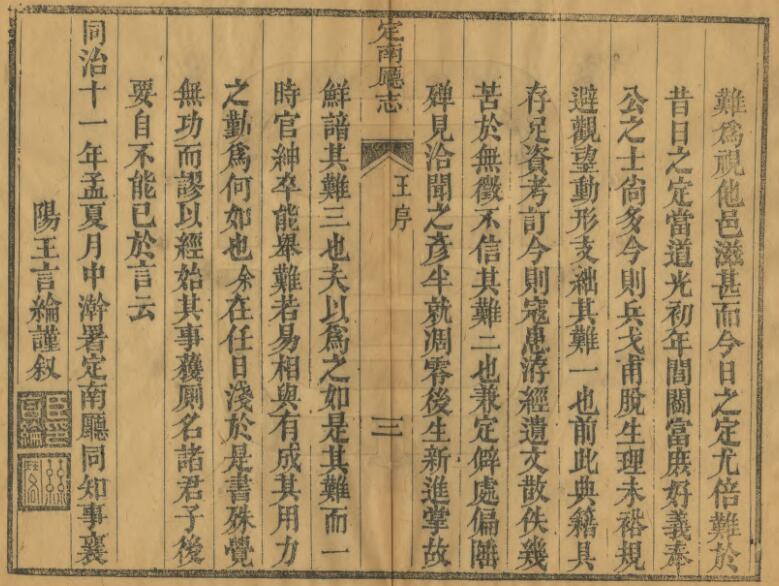 難為視他邑滋甚而今日之定尤倍難於
昔日之定當道光初年間閭富庶好義奉
公之士尙多今則兵戈甫脫生理未裕規
避觀望動形支絀其難一也前此典籍具
存足資考訂今則寇患洊經遺文散佚幾
苦於無徵不信其難二也兼定僻處偏隅
殫見洽聞之彥半就凋零後生新進掌故
定南廳志
王序
三
鮮諳其難三也夫以為之如是其難而一
時官紳卒能舉難若易相與有成其用力
之勤為何如也余在任日淺於是書殊覺
無功而謬以經始其事獲廁名諸君子後
要自不能已於言云
同治十一年孟夏月中澣署定南廳同知事襄
陽王言綸謹叙